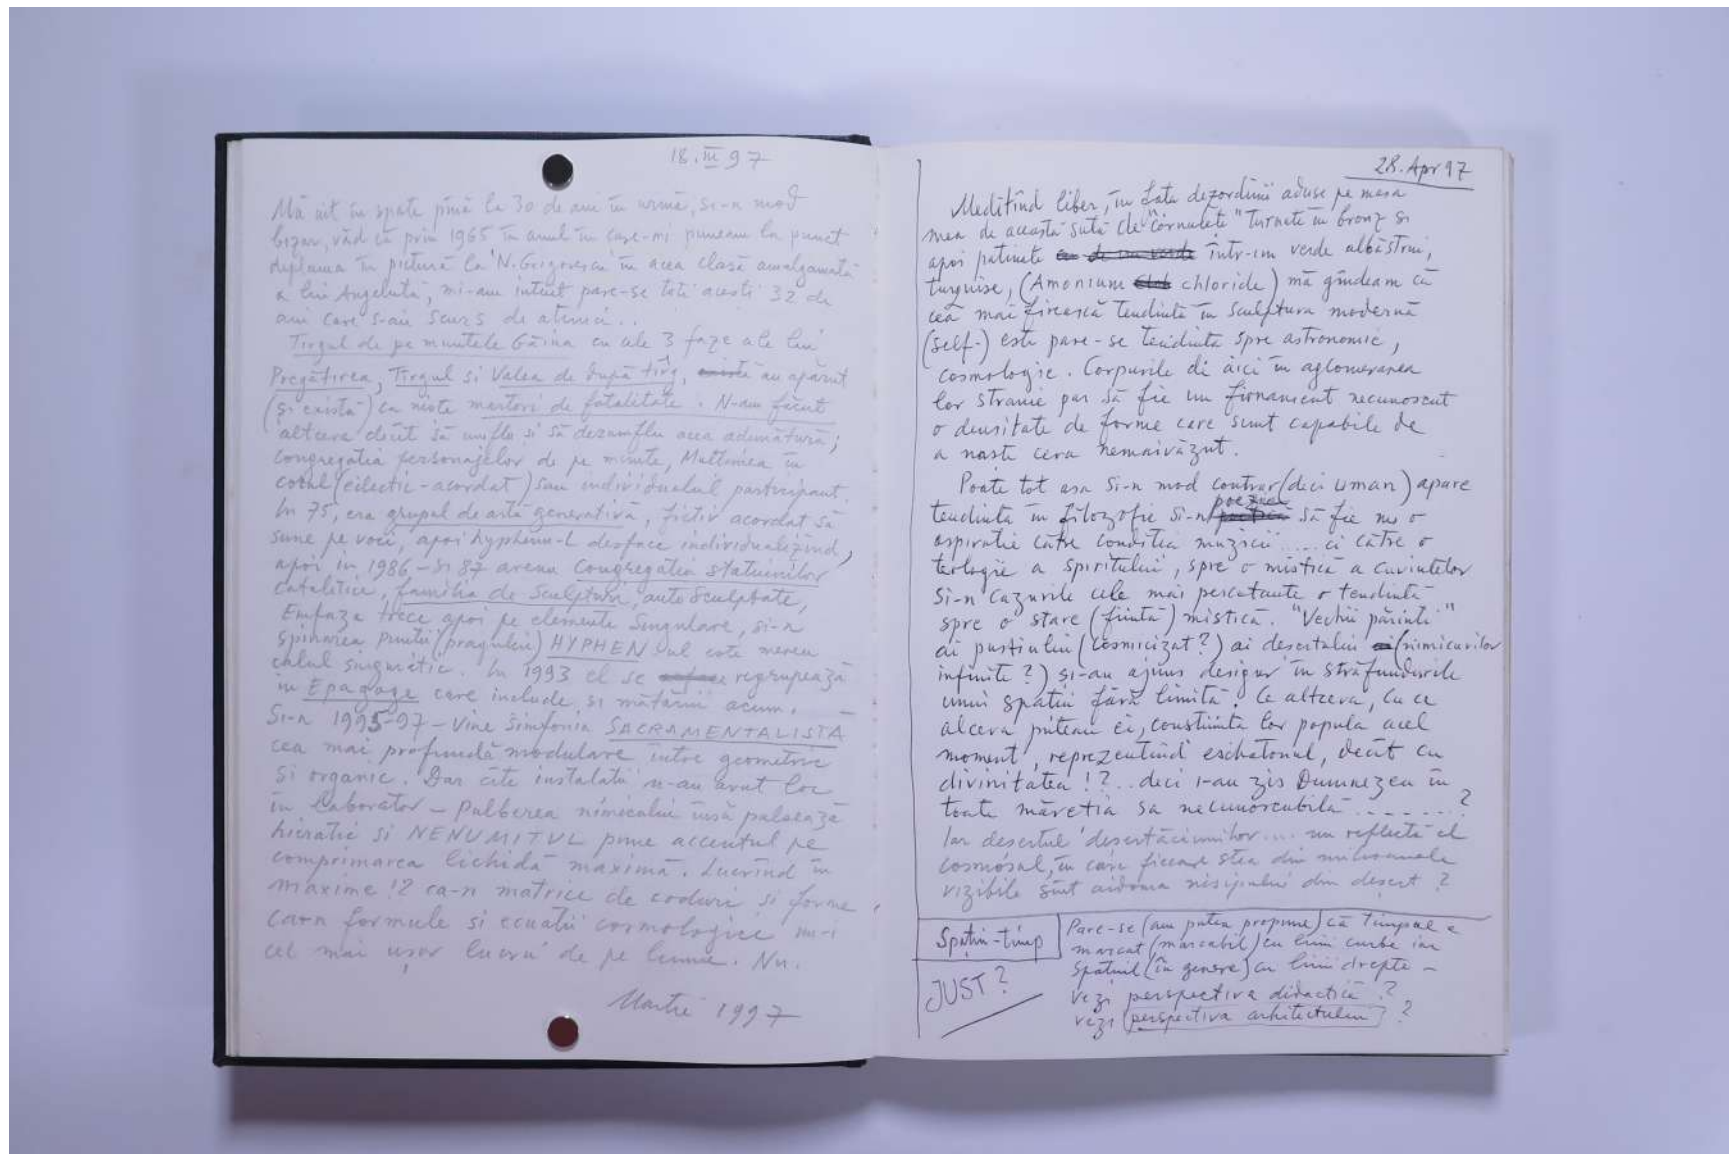 18.III 97
Mă uit în spate pînă la 30 de ani în urmă, si-n mod
bizar, văd că prin 1965 în anul în care-mi puneam la punct
diploma în pictură la "N. Grigorescu" în acea clasă amalgamată
a lui Angeluță, mi-am intuit pare-se toti acesti 32 de
ani care s-au scurs de atunci..
Tîrgul de pe muntele Găina cu cele 3 faze ale lui
Pregătirea, Tîrgul si Valea de după tîrg, au apărut
(si există) ca niste martori de fatalitate. N-am făcut
altceva decît să umflu si să dezumflu acea adunătură;
Congregatia personajelor de pe munte, Multimea în
corul (eclectic-acordat) sau individualul participant.
În 75, era grupul de artă generativă, fictiv acordat să
sune pe voci, apoi hyphenu-l desface individualizînd,
apoi in 1986-si 87 aveau Congregatia statuienilor
Catalitice, familia de Sculpturi, autosculptate,
Emfaza trece apoi pe elemente singulare, si-n
spinarea puntii (pragului) HYPHEN-ul este mereu
calul enigmetic. În 1993 el se regrupează
în Epagoge care include si mătanii acum.
Si-n 1995-97 – Vine Simfonia SACRAMENTALISTĂ
cea mai profundă modulare între geometric
si organic. Dar cîte instalatii n-au avut loc
în Laborator – Pulberea nimicului însă pulsează
hieratic si NENUMITUL pune accentul pe
comprimarea lichidă maximă. Lucrînd în
maxime!? ca-n matrice de coduri si forme,
ca-n formule si ecuatii cosmologice nu-i
cel mai usor lucru de pe lume. Nu.
Martie 1997
28.Apr 97
Meditînd liber, în fata dezordinii aduse pe masa
mea de această sută de "cornulete" turnate în bronz si
apoi patinate într-un verde albăstrui,
turquise, (Amonium chloride) mă gîndeam că
cea mai firească tendintă în sculptura modernă
(self-) este pare-se tendinta spre astronomie,
cosmologie. Corpurile de aici în aglomerarea
lor stranie par să fie un firmament necunoscut
o densitate de forme care sunt capabile de
a naste ceva nemaivăzut.
Poate tot asa si-n mod contrar (deci uman) apare
tendinta în filozofie si-n poezie să fie nu o
aspiratie către conditia muzicii ..... ci către o
teologie a spiritului, spre o mistică a cuvintelor
si-n cazurile cele mai percutante o tendintă
spre o stare (fiintă) mistică. "Vechii părinti"
ai pustiului (cosmicizat?) ai desertului (nimicurilor
infinite?) si-au ajuns desigur în străfundurile
unui spatiu fără limită. Ce altceva, cu ce
alceva puteau ei, constiinta lor popula acel
moment, reprezentînd eschatonul, decît cu
divinitatea!?...deci i-au zis Dumnezeu în
toate măretia sa necunoscubilă .......?
Iar desertul desertăciunilor.... nu reflectă el
cosmosul, în care fiecare stea din miliardele
vizibile sînt aidoma nisipului din desert?
Spatiu-timp
JUST?
Pare-se (am putea propune) că timpul e
marcat (marcabil) cu linii curbe iar
spatiul (în genere) cu linii drepte –
vezi perspectiva didactică ?
vezi perspectiva arhitectului ?